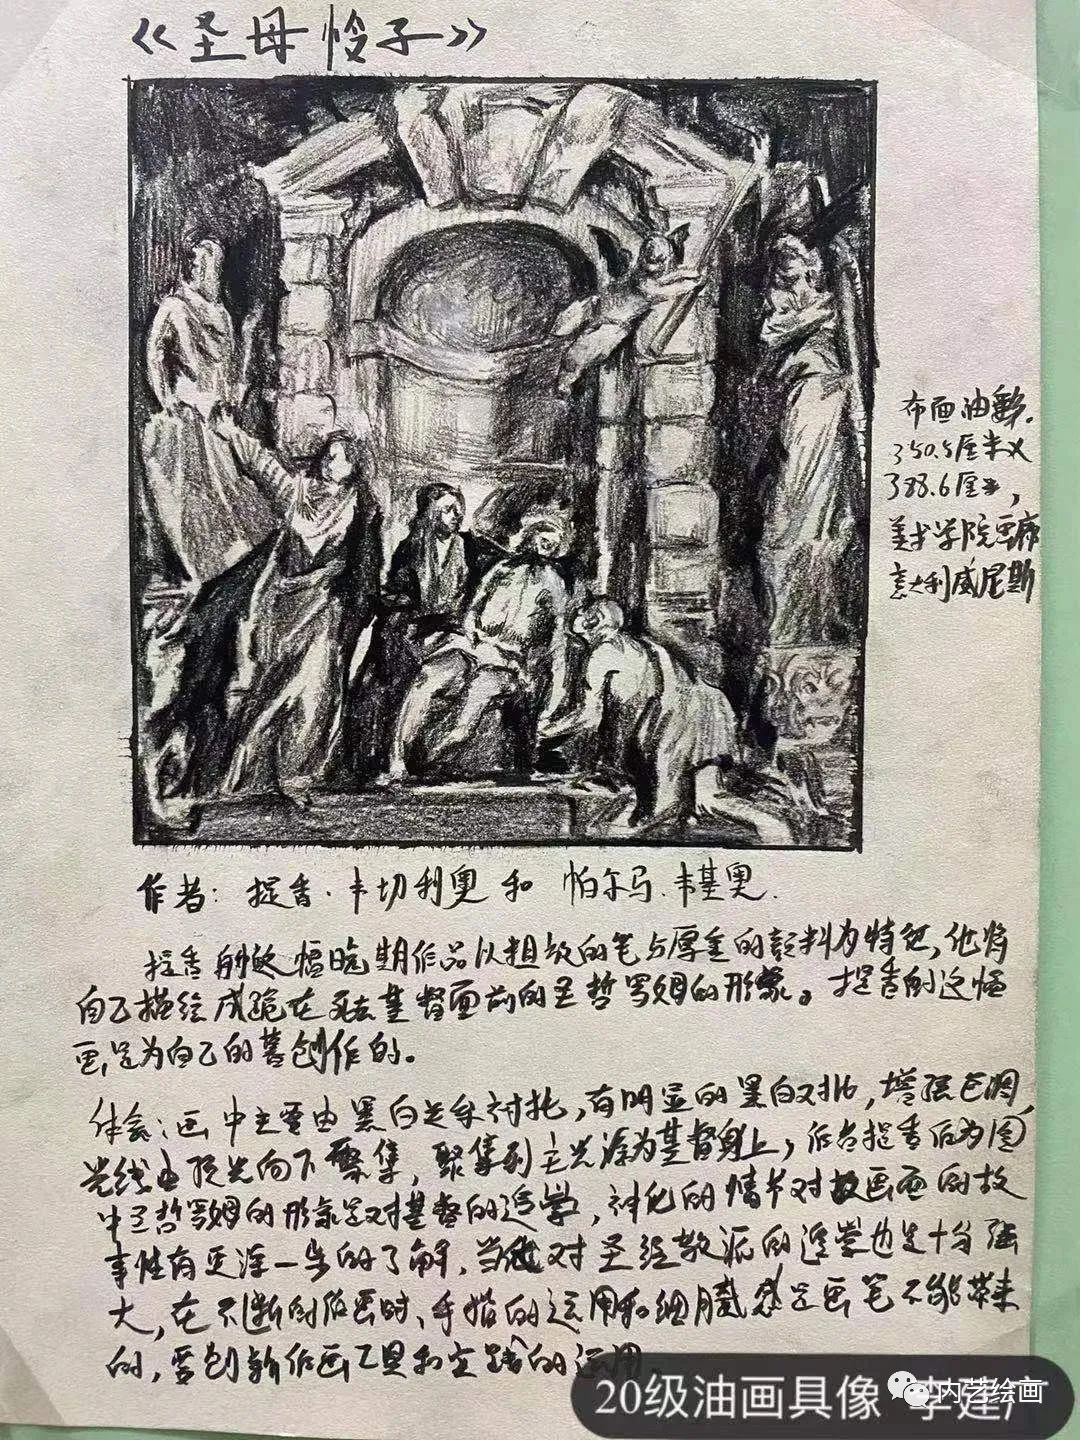 《圣母怜子》
布面油画.
350.5厘米X
388.6厘米,
美术学院画廊
意大利威尼斯
作者: 提香·韦切利奥 和 帕尔马·韦基奥.
提香 这幅晚期作品以粗放的笔与厚重的颜料为特征, 他将
自己描绘成跪在死去基督面前的圣哲罗姆的形象。提香的这幅
画,是为自己的墓创作的。
体会: 画中主要由黑白关系衬托, 有明显的黑白对比, 增强色调
光线由顶光向下聚集, 聚集到主光源为基督身上, 作者提香作为图
中圣哲罗姆的形象是对基督的 神化的情节对故画面的故
事性有更深一步的了解, 当他对圣经教派的 也是十分强
大, 在不断的作画时、手指的运用和细腻感是画笔不能带来
的, 要创新作画工具和实践的运用
20级油画具像 李建
内艺绘画